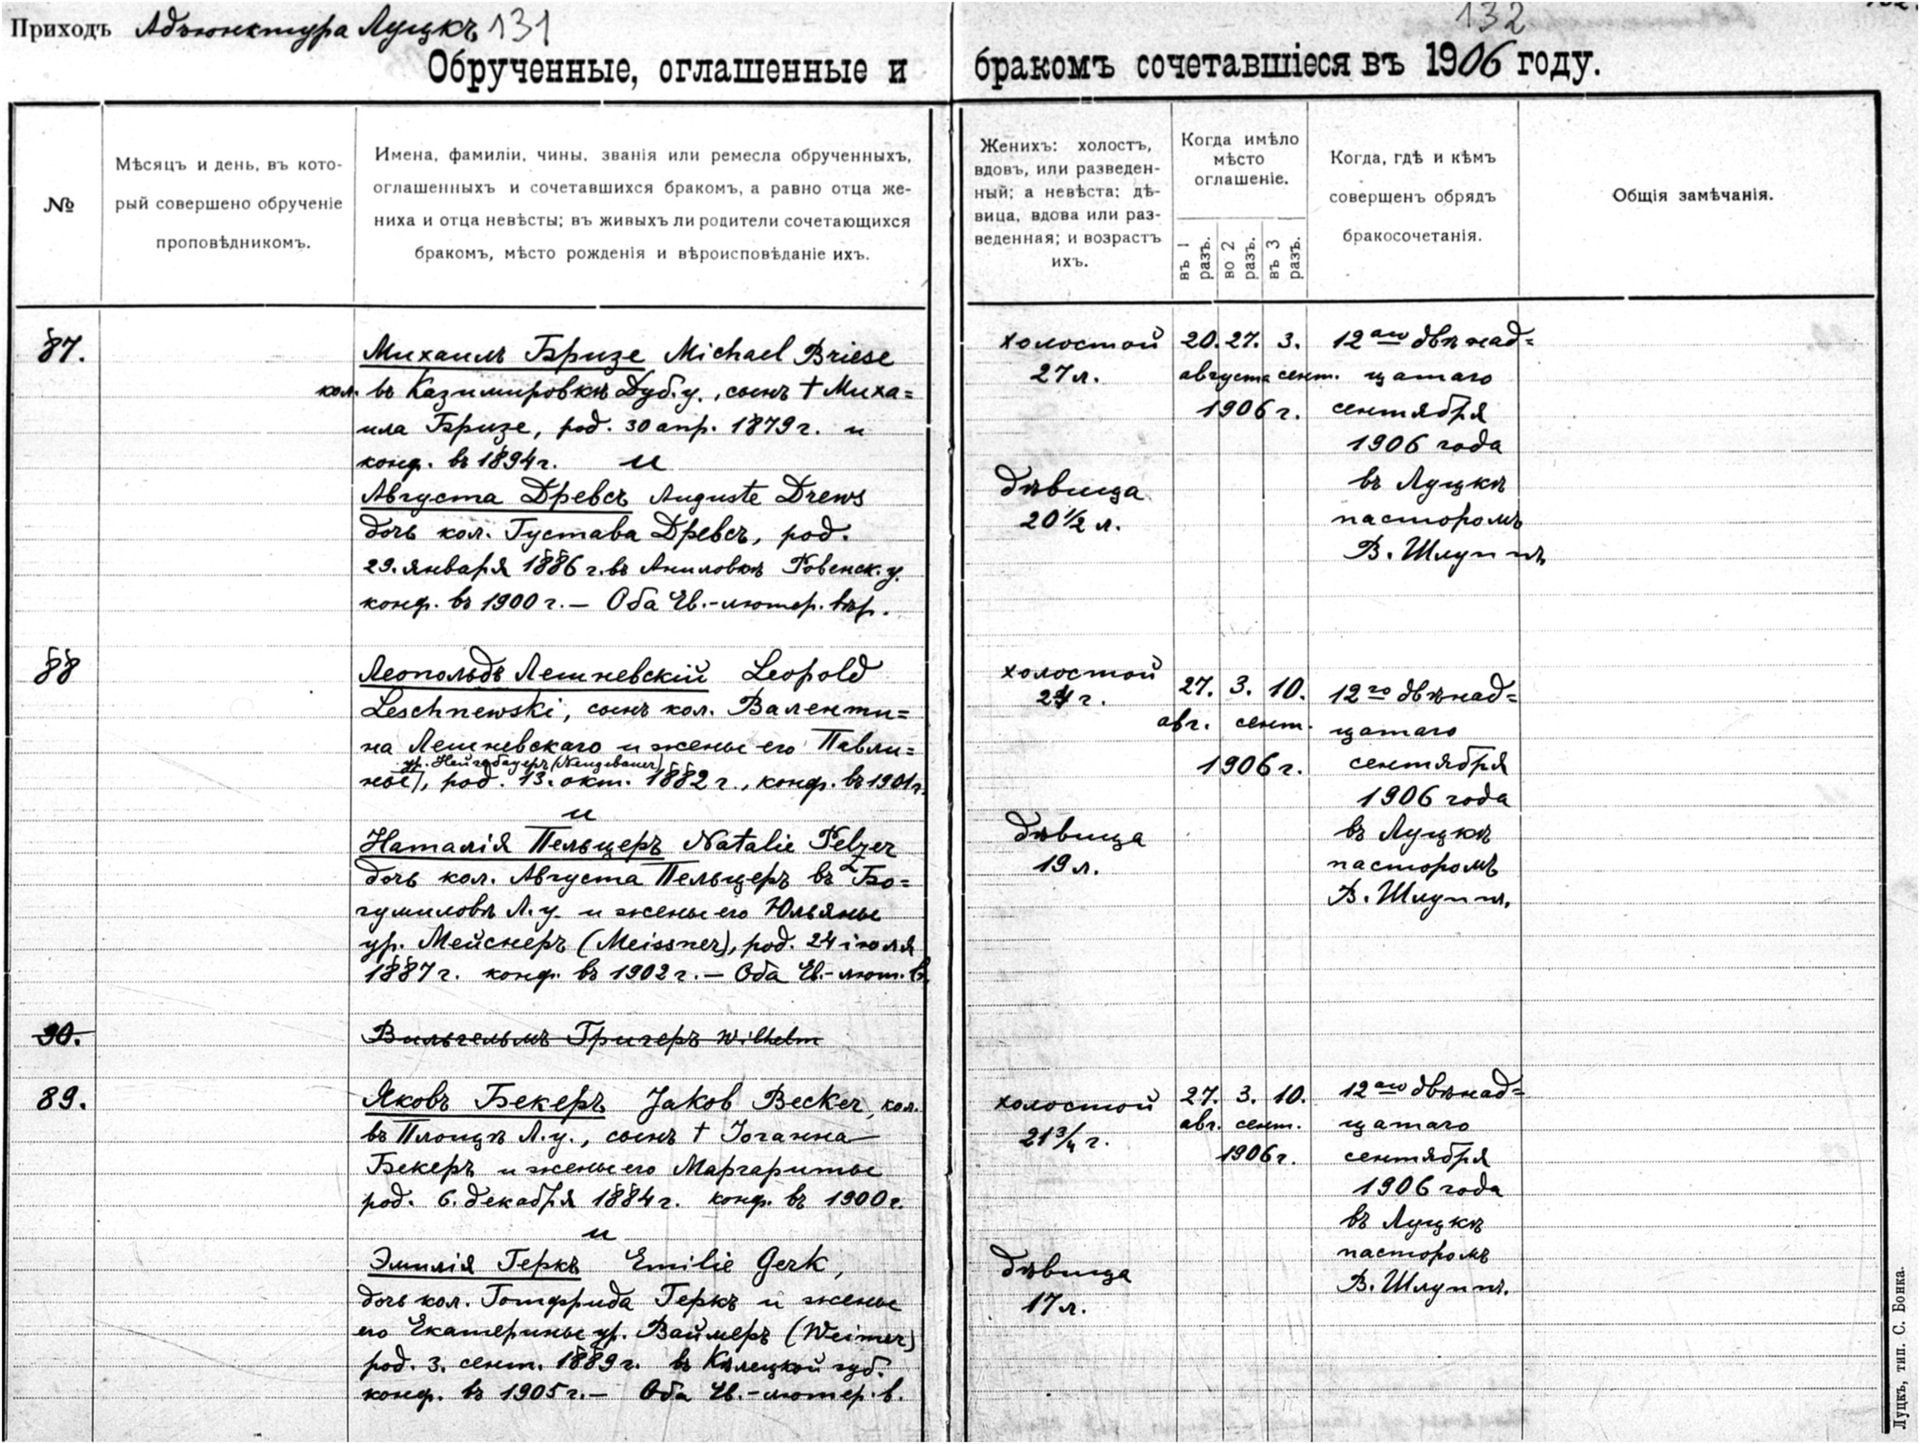 Приходъ Адъюнктура Луцкъ 131
132
Обрученные, оглашенные и бракомъ сочетавшіеся въ 1906 году.
№
Мѣсяцъ и день, въ кото-
рый совершено обрученіе
проповѣдникомъ.
Имена, фамиліи, чины, званія или ремесла обрученныхъ,
оглашенныхъ и сочетавшихся бракомъ, а равно отца же-
ниха и отца невѣсты; въ живыхъ ли родители сочетающихся
бракомъ, мѣсто рожденія и вѣроисповѣданіе ихъ.
Женихъ: холостъ,
вдовъ, или разведен-
ный; а невѣста: дѣ-
вица, вдова или раз-
веденная; и возрастъ
ихъ.
Когда имѣло
мѣсто
оглашеніе.
въ 1 разъ.
во 2 разъ.
въ 3 разъ.
Когда, гдѣ и кѣмъ
совершенъ обрядъ
бракосочетанія.
Общія замѣчанія.
87.
Михаилъ Бризе Michael Briese
кол. въ Казимировкѣ Дуб. у., сынъ † Миха=
ила Бризе, род. 30 апр. 1879 г. и
конф. въ 1894 г. и
Августа Древсъ Auguste Drews
дочь кол. Густава Древсъ, род.
29. января 1886 г. въ Аниловкѣ Ровенск. у.
конф. въ 1900 г. — Оба Ев.-лютер. вѣр.
холостой
27 л.
дѣвица
20 1/2 л.
20. 27. 3.
августа сент.
1906 г.
12аго двѣнад=
цатаго
сентября
1906 года
въ Луцкѣ
пасторомъ
В. Шлуппъ
88
Леопольдъ Лешневскій Leopold
Leschnewski, сынъ кол. Валенти=
на Лешневскаго и жены его Павли=
ур. Нейгебауеръ (Neugebauer)
ны, род. 13. окт. 1882 г., конф. въ 1901 г.
и
Наталія Пельцеръ Natalie Pelzer
дочь кол. Августа Пельцеръ въ Бо=
гумиловѣ Л. у. и жены его Юльяны
ур. Мейснеръ (Meissner), род. 24 іюля
1887 г. конф. въ 1902 г. — Оба Ев.-лют. в.
холостой
24 г.
дѣвица
19 л.
27. 3. 10.
авг. сент.
1906 г.
12го двѣнад=
цатаго
сентября
1906 года
въ Луцкѣ
пасторомъ
В. Шлуппъ.
90.
Вильгельмъ Григеръ Wilhelm
89.
Яковъ Бекеръ Jakob Becker, кол.
въ Плоицѣ Л. у., сынъ † Іоганна
Бекеръ и жены его Маргариты
род. 6. декабря 1884 г. конф. въ 1900 г.
и
Эмилія Геркъ Emilie Gerk,
дочь кол. Готфрида Геркъ и жены
его Екатерины ур. Ваймеръ (Weimer)
род. 3. сент. 1889 г. въ Кѣлецкой губ.
конф. въ 1905 г. — Оба Ев.-лютер. в.
холостой
21 3/4 г.
дѣвица
17 л.
27. 3. 10.
авг. сент.
1906 г.
12аго двѣнад=
цатаго
сентября
1906 года
въ Луцкѣ
пасторомъ
В. Шлуппъ.
Луцкъ, тип. С. Бонка.